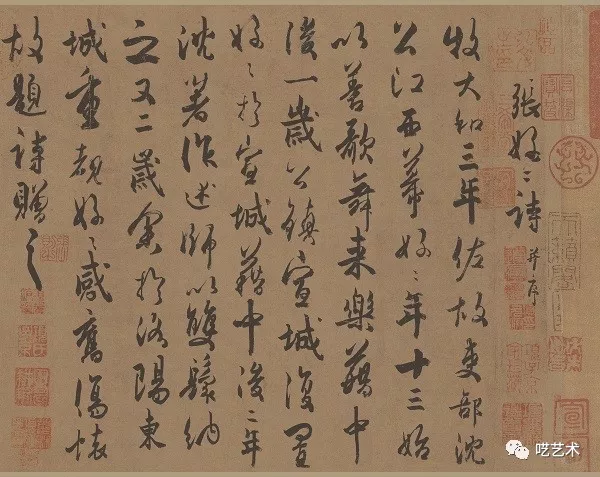 張好〻詩并序
牧大和三年佐故吏部沈
公江西幕好〻年十三始
以善歌舞来樂籍中
後一歲公鎮宣城復置
好〻於宣城籍中後二年
沈著作述師以雙鬟納
之又二歲余於洛陽東
城重覩好〻感舊傷懷
故題詩贈之
哎艺术